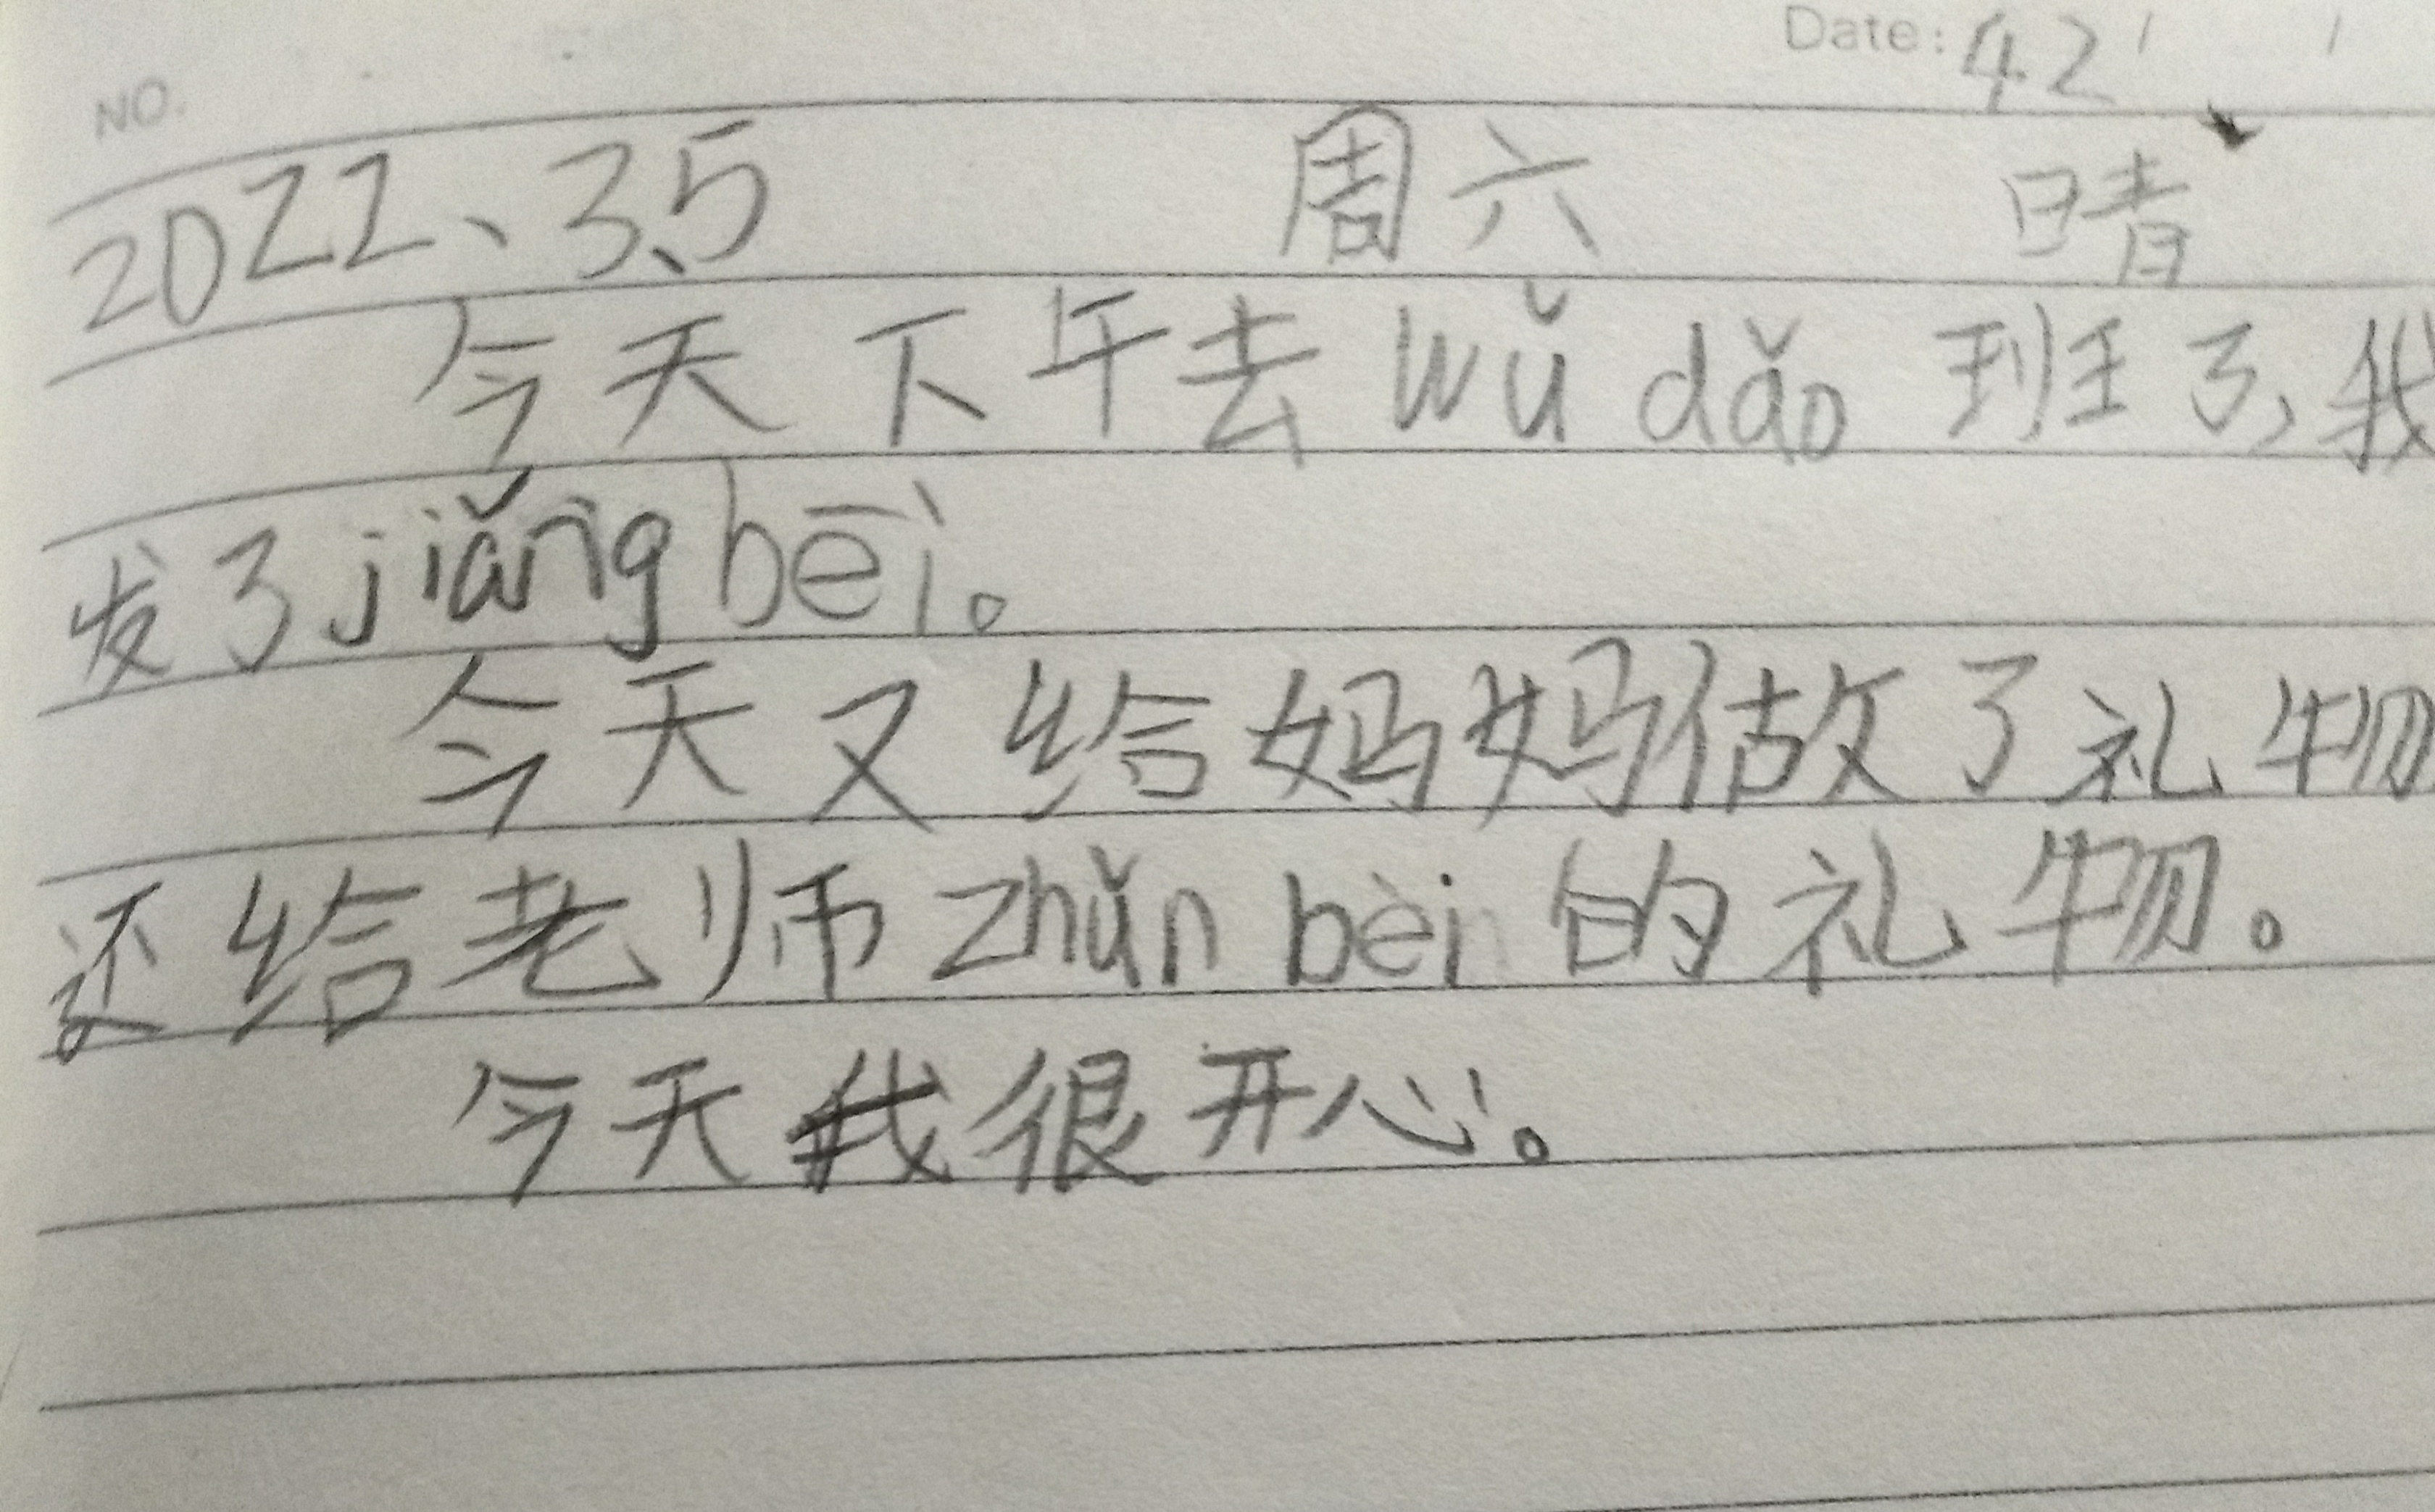 NO.
Date: 42
2022、3、5 周六 晴
今天下午去 wǔ dǎo 班了,我
发了jiǎng bēi。
今天又给妈妈做了礼物
还给老师 zhǔn bèi 的礼物。
今天我很开心。